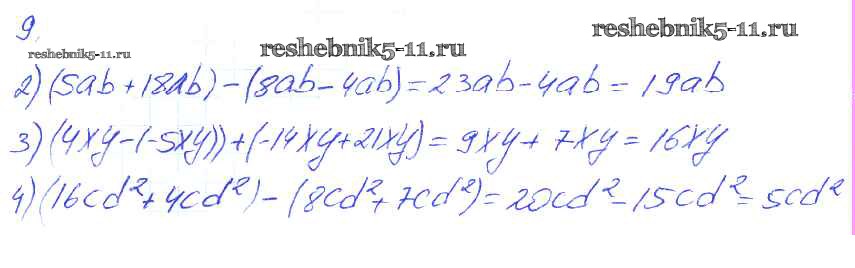 9.
reshebnik5-11.ru reshebnik5-11.ru reshebnik5-11.ru
2) (5ab + 18ab) - (8ab - 4ab) = 23ab - 4ab = 19ab
3) (4xy - (-5xy)) + (-14xy + 21xy) = 9xy + 7xy = 16xy
4) (16cd² + 4cd²) - (8cd² + 7cd²) = 20cd² - 15cd² = 5cd²